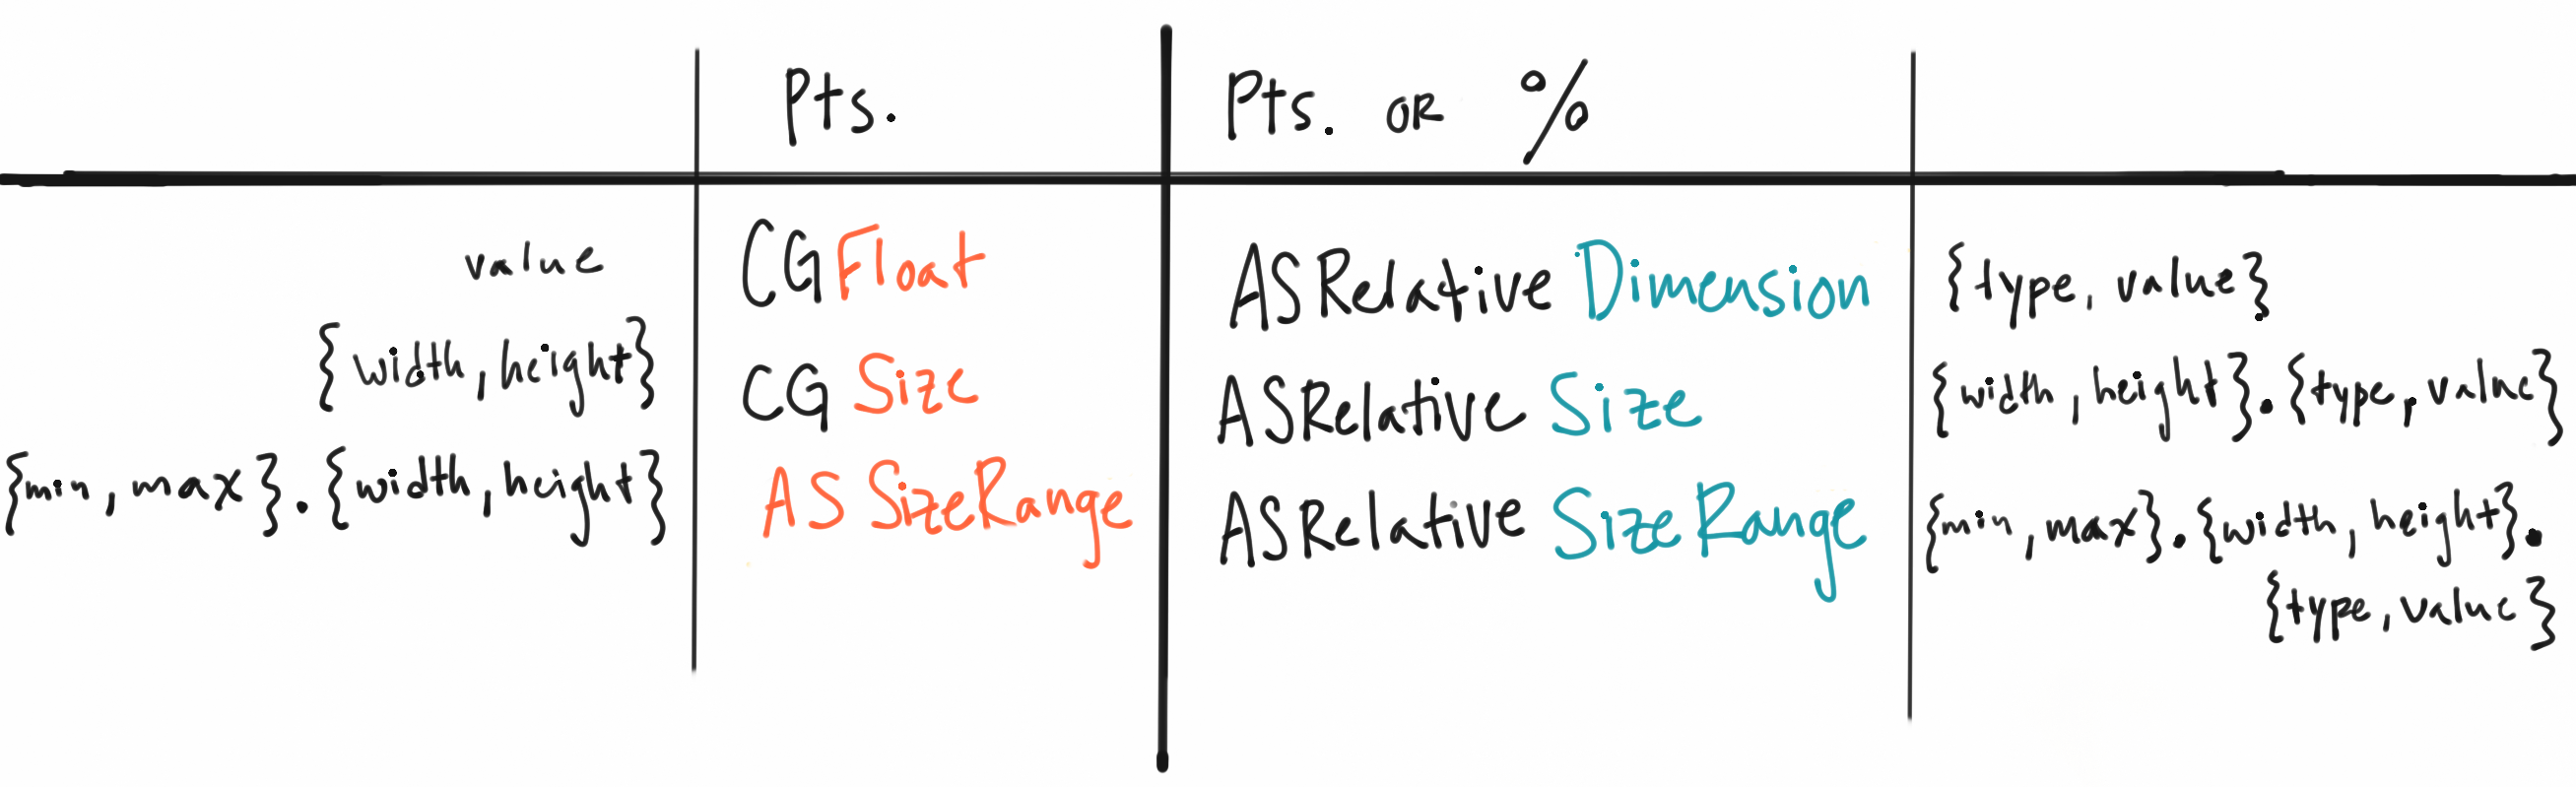 Pts. Pts. OR %
value CGFloat ASRelative Dimension {type, value}
{width, height} CG Size ASRelative Size {width, height}.{type, value}
{min, max}.{width, height} AS SizeRange ASRelative SizeRange {min, max}.{width, height}.
{type, value}